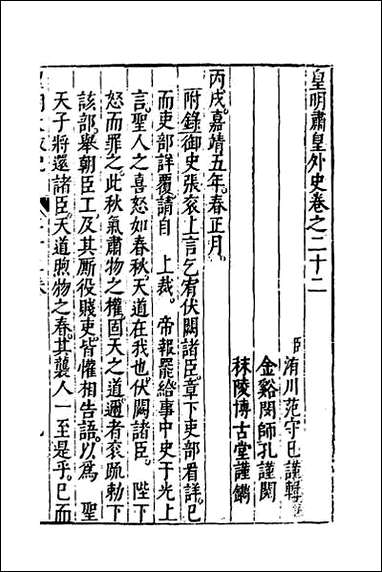 皇明肅皇外史卷之二十二
洧川范守己謹輯
金谿閔師孔謹閱
秣陵博古堂謹鐫
丙戌嘉靖五年春正月
附錄御史張袞上言乞宥伏闕諸臣章下吏部看詳已
而吏部詳覆請自 上裁 帝報罷給事中史于光上
言聖人之喜怒如春秋天道在我也伏闕諸臣 陛下
怒而罪之此秋氣肅物之權固天之道邇者袞疏勅下
該部舉朝臣工及其厮役賤吏皆懽相告語以為 聖
天子將還諸臣天道煦物之春其襲人一至是乎已而